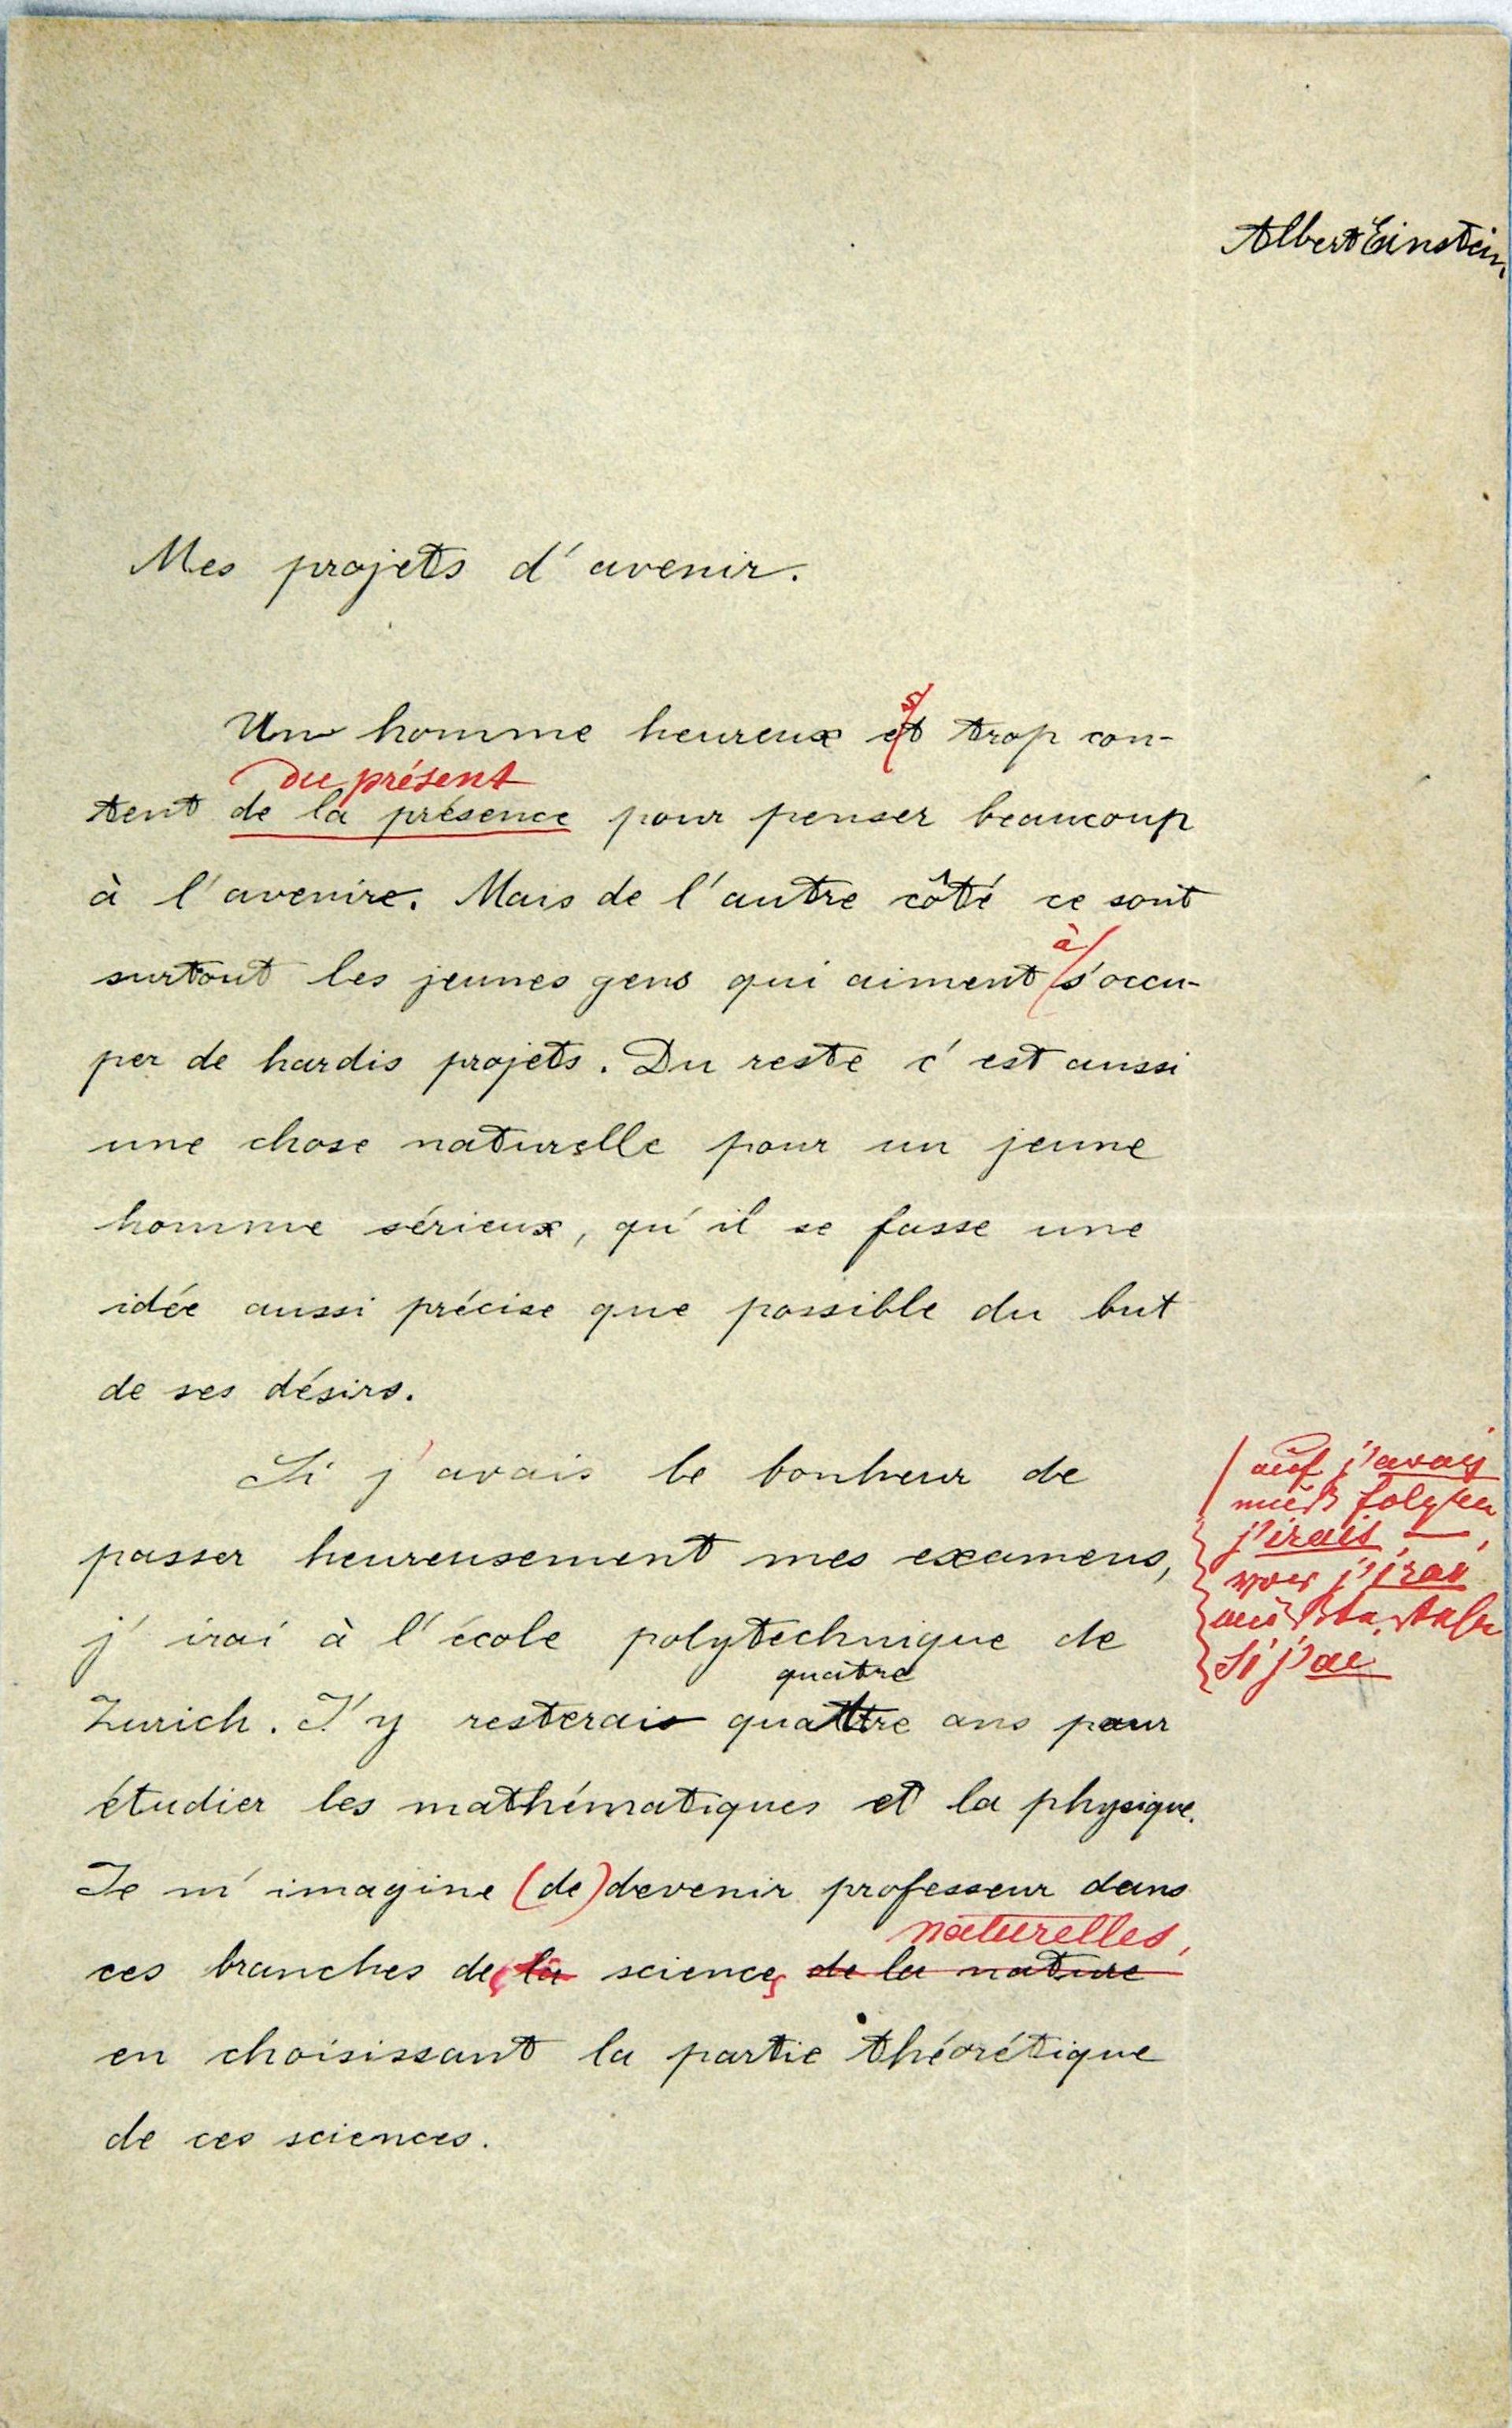 Albert Einstein
Mes projets d'avenir.
s
Un homme heureux et trop con-
du présent
tent de la présence pour penser beaucoup
à l'avenire. Mais de l'autre côté ce sont
à
surtout les jeunes gens qui aiment s'occu-
per de hardis projets. Du reste c'est aussi
une chose naturelle pour un jeune
homme sérieux, qu'il se fasse une
idée aussi précise que possible du but
de ses désirs.
Si j'avais le bonheur de
passer heureusement mes examens,
j'irai à l'école polytechnique de
quatre
Zurich. J'y resterais quattre ans pour
étudier les mathématiques et la physique.
Je m'imagine (de) devenir professeur dans
naturelles,
ces branches des la sciences de la nature
en choisissant la partie théorétique
de ces sciences.
auf j'avais
muß folgen
j'irais —,
vor j'irai
muß
si j'ai